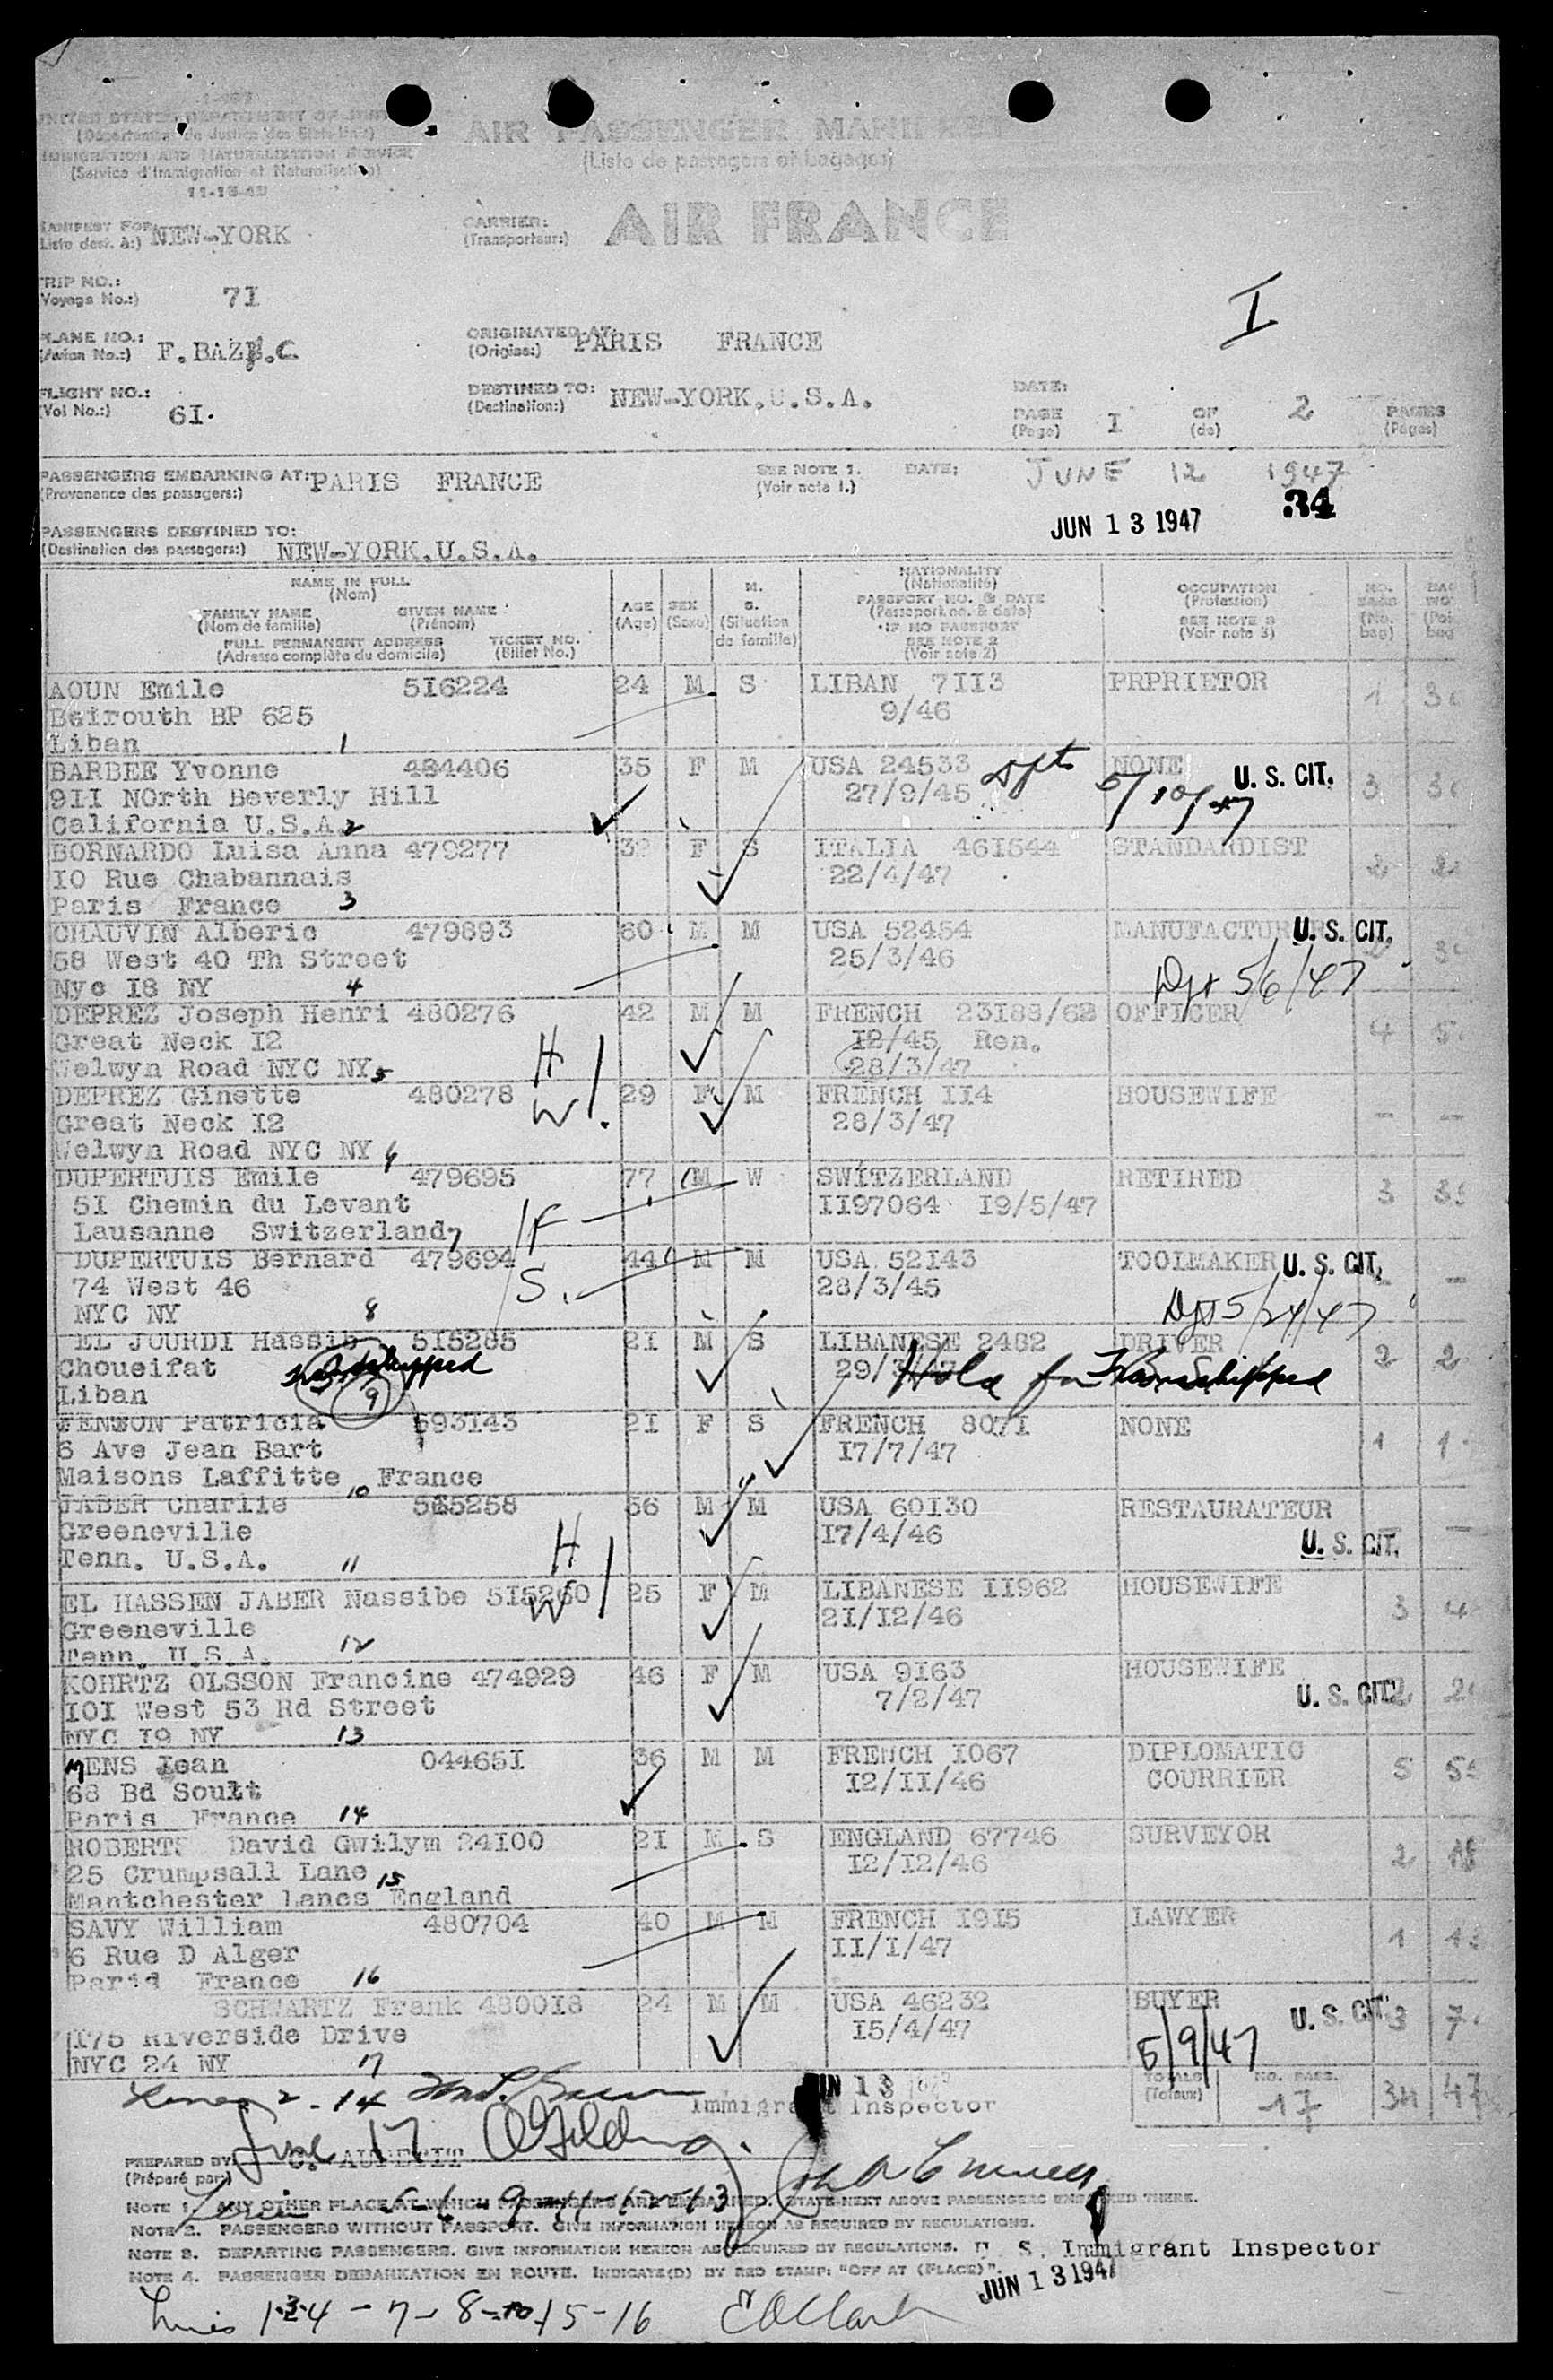 UNITED STATES DEPARTMENT OF
(Département de Justice des Etats-Unis)
IMMIGRATION AND NATURALIZATION SERVICE
(Service d'Immigration et Naturalisation)
AIR PASSENGER MANIFEST
(Liste de passagers et bagages)
MANIFEST FOR: NEW-YORK
(Liste dest. à:)
CARRIER: AIR FRANCE
(Transporteur:)
TRIP NO.: 7I
(Voyage No.:)
I
PLANE NO.: F.BAZ .C
(Avion No.:)
ORIGINATED AT: PARIS FRANCE
(Origine:)
FLIGHT NO.: 6I.
(Vol No.:)
DESTINED TO: NEW-YORK.U.S.A.
(Destination:)
DATE:
PAGE I OF 2 PAGES
(Page) (de) (Pages)
PASSENGERS EMBARKING AT: PARIS FRANCE
(Provenance des passagers:)
SEE NOTE 1. DATE: JUNE 12 1947
(Voir note 1.)
JUN 13 1947 34
PASSENGERS DESTINED TO: NEW-YORK.U.S.A.
(Destination des passagers:)
NAME IN FULL
(Nom)
FAMILY NAME GIVEN NAME
(Nom de famille) (Prénom)
FULL PERMANENT ADDRESS TICKET NO.
(Adresse complète du domicile) (Billet No.)
AGE
(Age)
SEX
(Sexe)
M.
S.
(Situation
de famille)
NATIONALITY
(Nationalité)
PASSPORT NO. & DATE
(Passeport no. & date)
*IF NO PASSPORT
SEE NOTE 2
(Voir note 2)
OCCUPATION
(Profession)
SEE NOTE 3
(Voir note 3)
NO.
BAGS
(No.
bag)
AOUN Emile 5I6224 24 M S LIBAN 7II3 PRPRIETOR 1
Beirouth BP 625 9/46
Liban 1
BARBEE Yvonne 484406 35 F M USA 24533 NONE U. S. CIT. 3
9II NOrth Beverly Hill 27/9/45 5/10/47
California U.S.A. 2
BORNARDO Luisa Anna 479277 32 F S ITALIA 46I544 STANDARDIST 2
IO Rue Chabannais 22/4/47
Paris France 3
CHAUVIN Alberic 479893 60 M M USA 52454 MANUFACTURER U. S. CIT.
58 West 40 Th Street 25/3/46
Nyc I8 NY 4 Dpt 5/6/47
DEPREZ Joseph Henri 480276 42 M M FRENCH 23I88/62 OFFICER 4
Great Neck I2 H I2/45 Ren.
Welwyn Road NYC NY 5 28/3/47
DEPREZ Ginette 480278 W 29 F M FRENCH II4 HOUSEWIFE -
Great Neck I2 28/3/47
Welwyn Road NYC NY 6
DUPERTUIS Emile 479695 77 M W SWITZERLAND RETIRED 3
5I Chemin du Levant F II97064 I9/5/47
Lausanne Switzerland 7
DUPERTUIS Bernard 479694 44 M M USA 52I43 TOOLMAKER U. S. CIT.
74 West 46 S. 28/3/45
NYC NY 8 Dpt 5/24/47
EL JOURDI Hassib 5I5285 2I M S LIBANESE 2482 DRIVER 2
Choueifat Transhipped 29/3/47 Hold for Transhipped
Liban 9
FENSON Patricia 593I43 2I F S FRENCH 807I NONE 1
6 Ave Jean Bart I7/7/47
Maisons Laffitte France 10
JABER Charlie 5I5258 56 M M USA 60I30 RESTAURATEUR -
Greeneville H I7/4/46 U. S. CIT.
Tenn. U.S.A. 11
EL HASSEN JABER Nassibe 5I5260 W 25 F M LIBANESE II962 HOUSEWIFE 3
Greeneville 2I/I2/46
Tenn. U.S.A. 12
KOHRTZ OLSSON Francine 474929 46 F M USA 9I63 HOUSEWIFE U. S. CIT. 2
IOI West 53 Rd Street 7/2/47
NYC I9 NY 13
MENS Jean 04465I 36 M M FRENCH I067 DIPLOMATIC 5
68 Bd Soult I2/II/46 COURRIER
Paris France 14
ROBERTS David Gwilym 24I00 2I M S ENGLAND 67746 SURVEYOR 2
25 Crumpsall Lane I2/I2/46
Mantchester Lancs England 15
SAVY William 480704 40 M M FRENCH I9I5 LAWYER 1
6 Rue D Alger II/I/47
Parid France 16
SCHWARTZ Frank 4800I8 24 M M USA 46232 BUYER U. S. CIT. 3
I75 Riverside Drive I5/4/47 5/9/47
NYC 24 NY 17
TOTALS NO. PASS. 17 34 47
(Totaux)
Lines 2-14
JUN 13
Immigrant Inspector
Line 17
PREPARED BY:
(Préparé par:)
5-6-9-11-12-13
NOTE 1. ANY OTHER PLACE AT WHICH PASSENGERS ARE EMBARKED. STATE NEXT ABOVE PASSENGERS EMBARKED THERE.
NOTE 2. PASSENGERS WITHOUT PASSPORT. GIVE INFORMATION HEREON AS REQUIRED BY REGULATIONS.
NOTE 3. DEPARTING PASSENGERS. GIVE INFORMATION HEREON AS REQUIRED BY REGULATIONS.
U. S. Immigrant Inspector
NOTE 4. PASSENGER DEBARKATION EN ROUTE. INDICATE(D) BY RED STAMP: "OFF AT (PLACE)".
JUN 13 1947
Lines 1-3-4-7-8-10-15-16